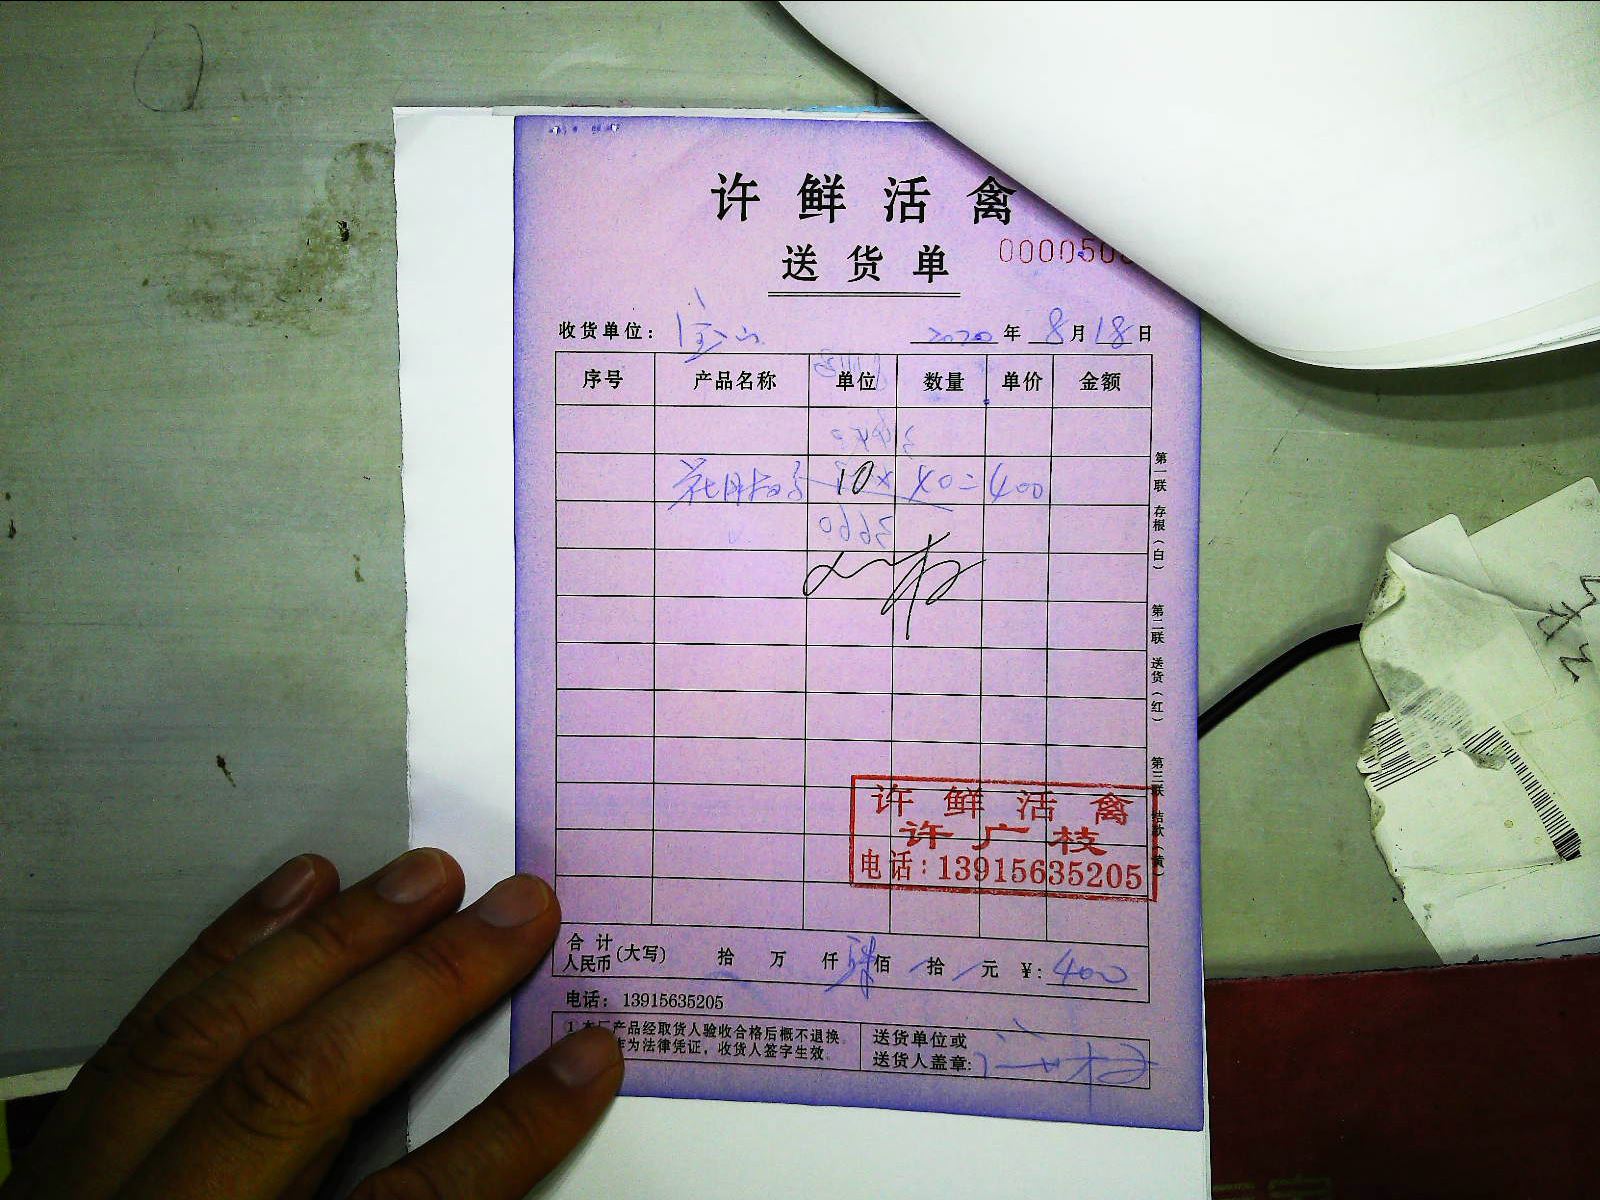 许鲜活禽
送货单
收货单位：宝山 2020年8月18日
序号 产品名称 单位 数量 单价 金额
10× 40=400
第一联 存根（白） 第二联 送货（红） 第三联 结款（黄）
许鲜活禽
许广枝
电话：13915635205
合计人民币（大写） 拾 万 仟 肆佰 拾 元 ¥：400
电话：13915635205
①本厂产品经取货人验收合格后概不退换。
作为法律凭证，收货人签字生效。
送货单位或
送货人盖章：